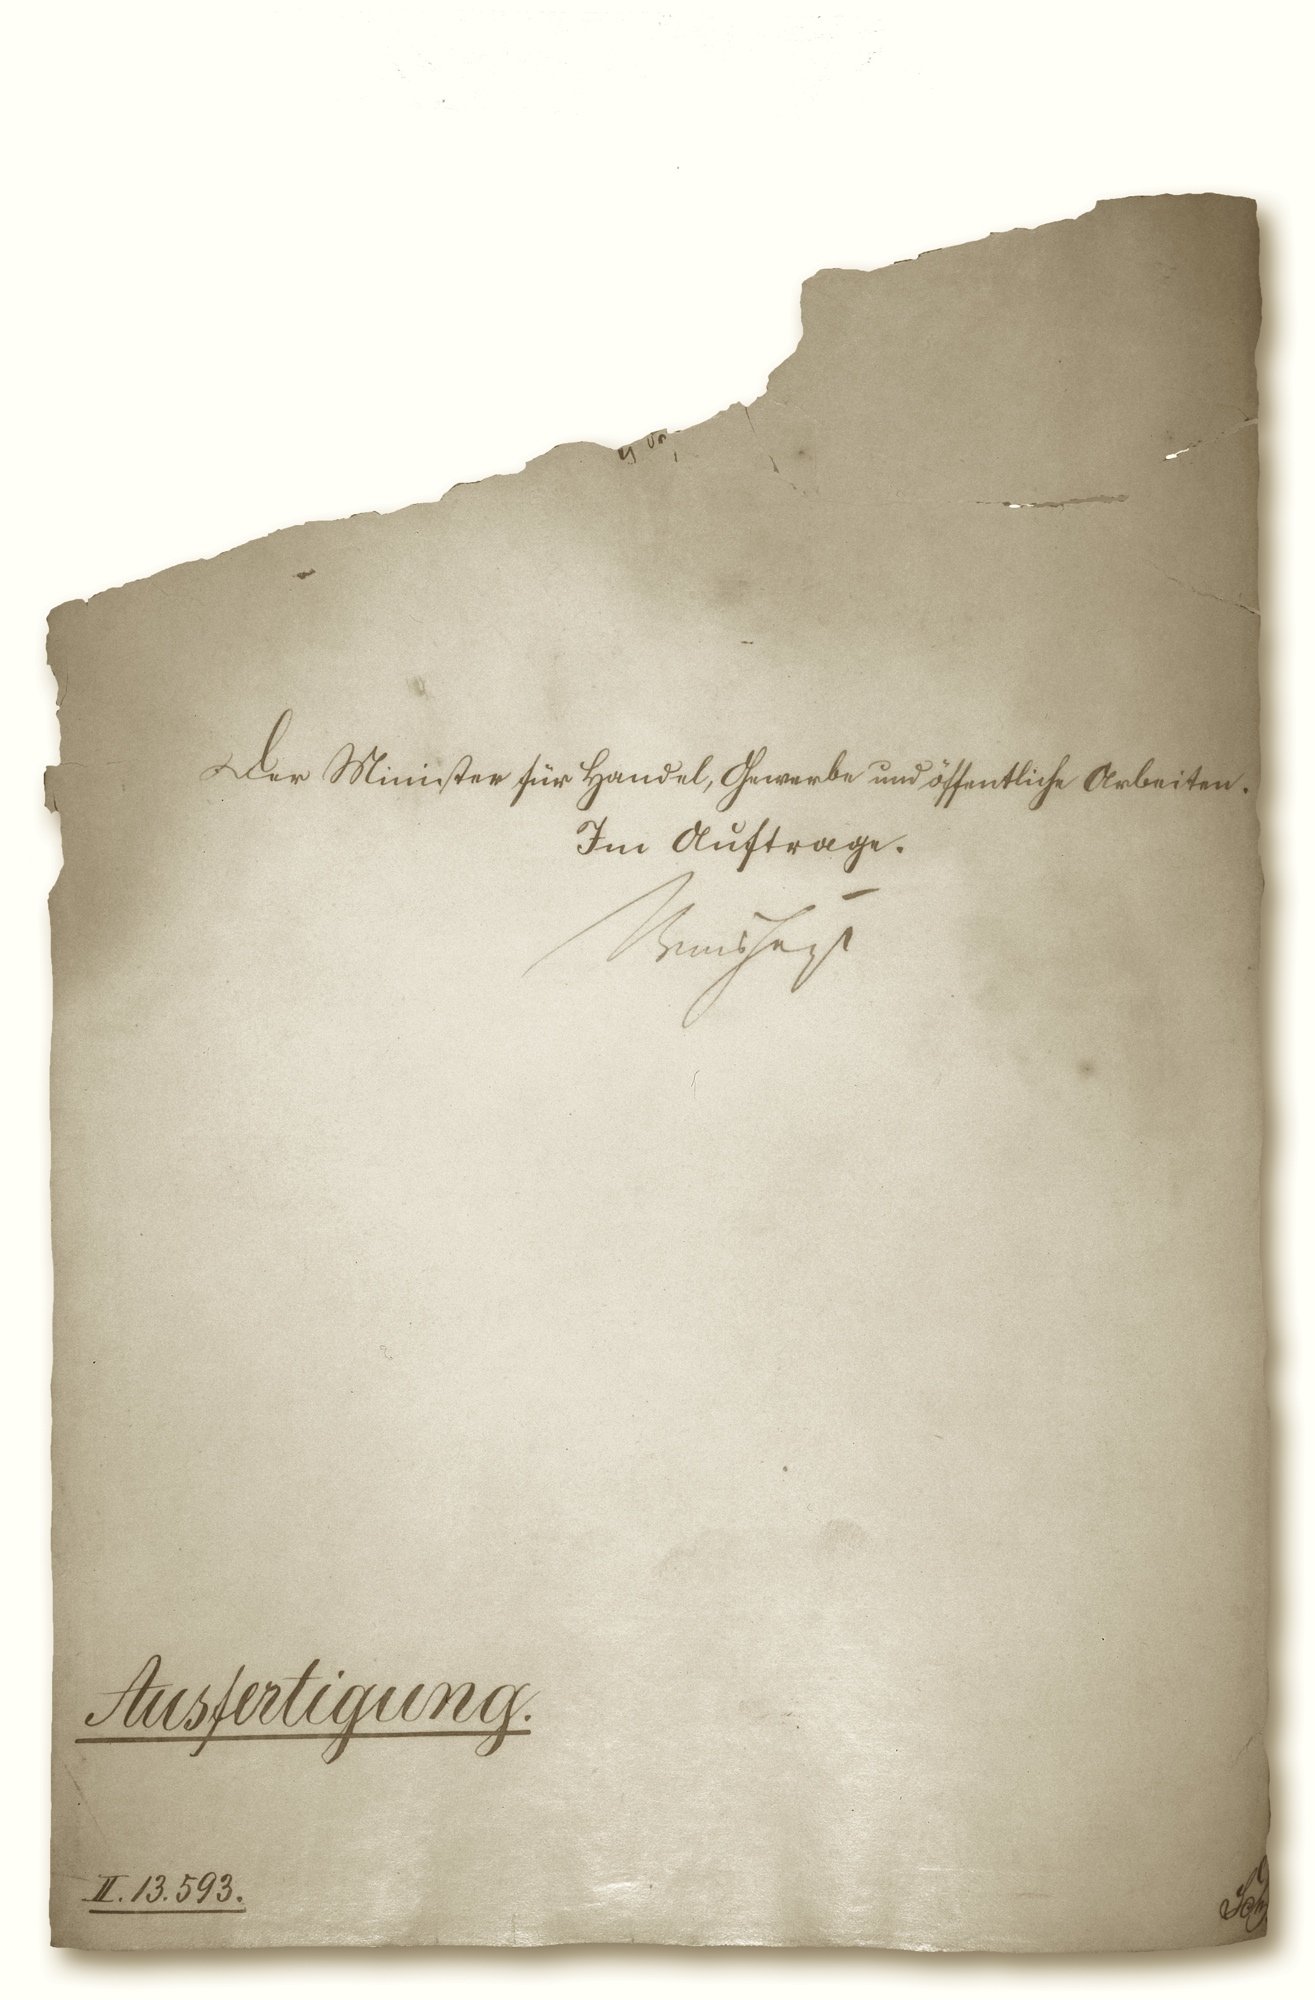 Der Minister für Handel, Gewerbe und öffentliche Arbeiten.
Im Auftrage.
Ausfertigung.
II. 13.593.